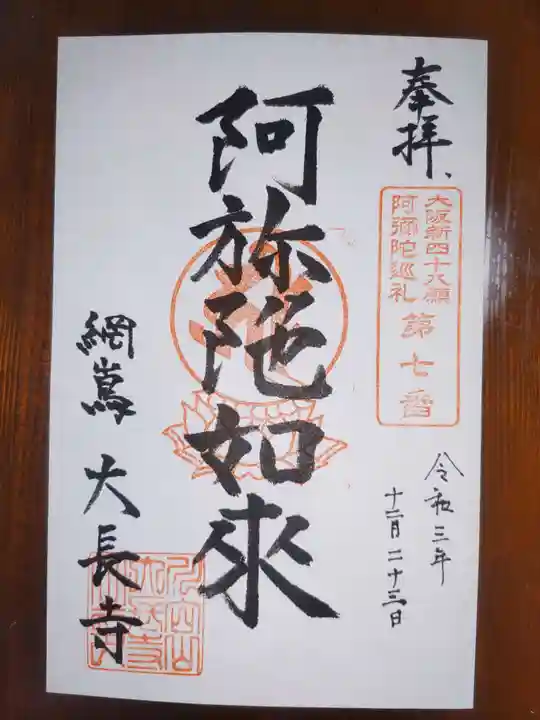 奉拝、
大阪新四十八願
阿弥陀巡礼
第七番
令和三年
十二月二十三日
阿弥陀如来
網嶌 大長寺